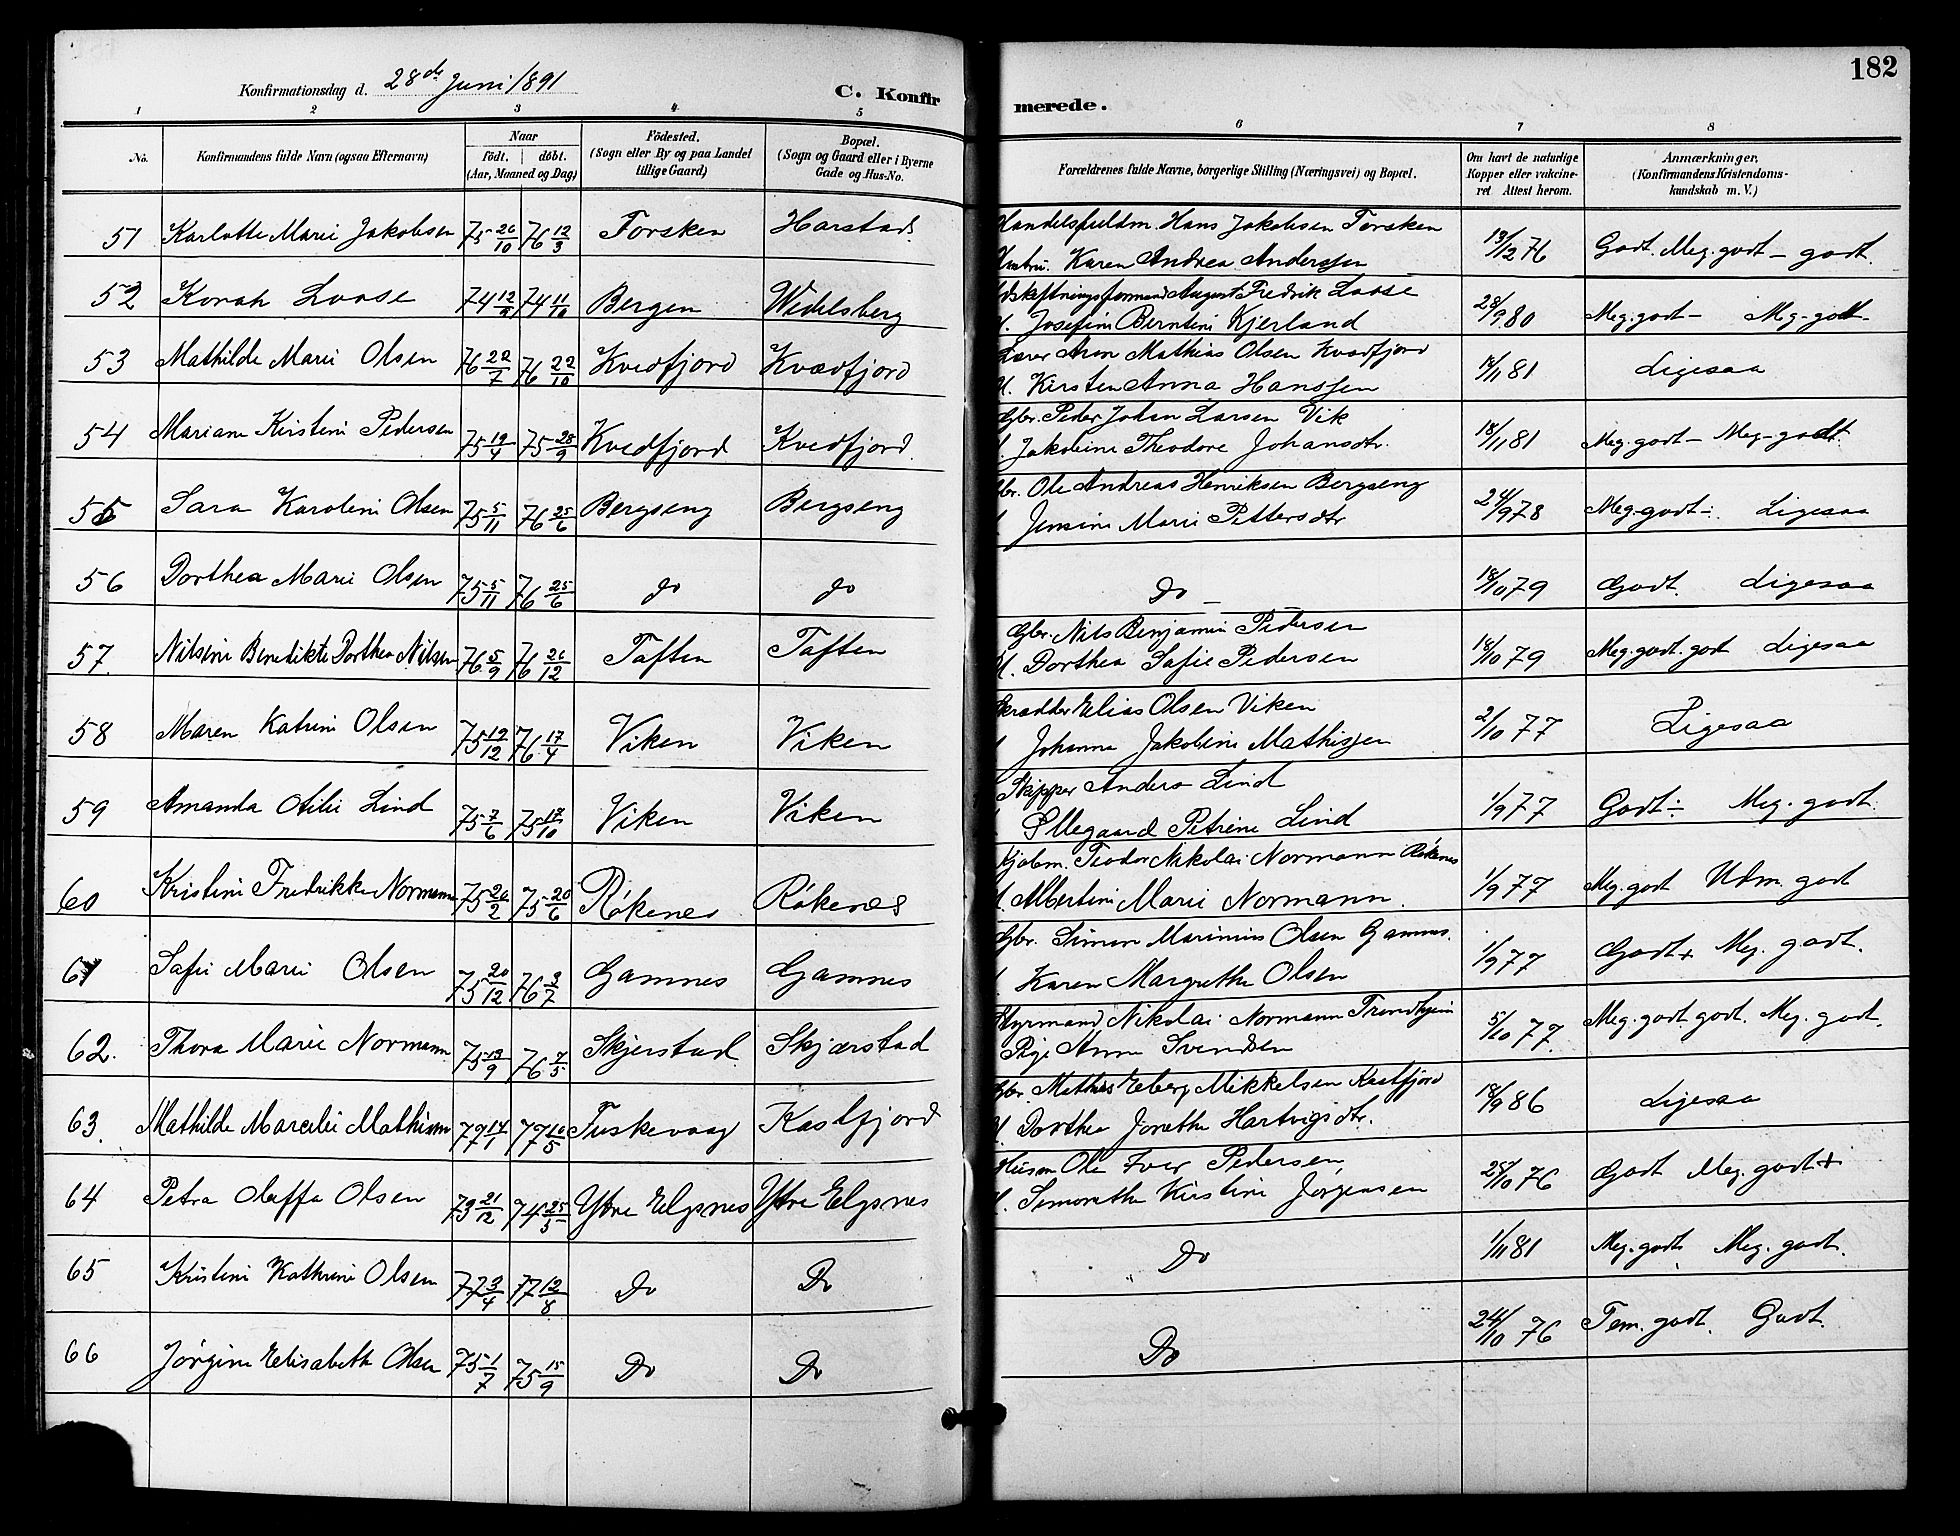 182
Konfirmationsdag d. 28de Juni 1891
C. Konfirmerede.
1 2 3 4 5 6 7 8
No. Konfirmandens fulde Navn (ogsaa Efternavn) Naar födt. | döbt. (Aar, Maaned og Dag) Födested. (Sogn eller By og paa Landet tillige Gaard) Bopæl. (Sogn og Gaard eller i Byerne Gade og Hus-No. Forældrenes fulde Navne, borgerlige Stilling (Næringsvei) og Bopæl. Om havt de naturlige Kopper eller vakcineret. Attest herom. Anmærkninger, (Konfirmandens Kristendomskundskab m. V.)
51 Karlotte Marie Jakobsen 75 26/10 76 12/3 Torsken Harstad. Hans Jakobsen Torsken
Karen Andrea Anderssen 13/12 76 Godt. Meg. godt – godt.
52 Korah Loose 74 74 11/10 Bergen Widelsberg August Fredrik Loose
Josefine Berntine Kjerland 28/9 80 Meg. godt – Meg. godt
53 Mathilde Marie Olsen 76 22/7 76 22/10 Kvedfjord Kvædfjord Lærer Aron Mathias Olsen Kvædfjord
H. Kirsten Anna Hanssen 18/11 81 Ligesaa
54 Mariane Kirstine Pedersen 75 19/4 75 28/9 Kvedfjord Kvedfjord. Gbr. Peder Johan Larsen Vik
Jakobine Theodore Johansdtr. 18/11 81 Meg. godt – Meg. godt.
55 Sara Karoline Olsen 75 5/11 76 25/6 Bergseng Bergseng Gbr. Ole Andreas Henriksen Bergseng
Jensine Marie Pettersdtr 24/9 78 Meg. godt ÷ Ligesaa
56 Dorthea Marie Olsen 75 5/11 76 25/6 do do do 18/10 79 Godt. Ligesaa
57. Nilsine Benedikte Dorthea Nilsen 76 5/9 76 26/12 Taften Taften Gbr. Nils Benjamin Pedersen
H. Dorthea Safie Pedersen 18/10 79 Meg. godt. god Ligesaa
58 Maren Katrine Olsen 75 12/12 76 17/4 Viken Viken Skrædder Elias Olsen Viken
Johanna Jakobine Mathissen 2/10 77 Ligesaa
59 Amanda Otilie Lind 75 7/6 75 17/10 Viken Viken Skipper Anders Lind
Ellegaard Petrine Lind 1/9 77 Godt ÷ Meg. godt.
60 Kristine Fredrikke Normann 75 20/2 75 20/6 Røkenes Røkenes Teodor Nikolai Normann Røkenes
H. Albertine Marie Normann. 1/9 77 Meg. godt Udm. godt
61 Safie Marie Olsen 75 20/12 76 2/7 Gamnes Gamnes Gbr. Simon Marinius Olsen Gamnes.
Karen Margrethe Olsen 1/9 77 Godt + Meg. godt.
62. Thora Marie Normann 75 19/9 76 7/5 Skjerstad Skjærstad Styrmand Nikolai Normann Trondhjem
Pige Anne Svendsen 5/10 77. Meg. godt. godt. Meg. godt.
63. Mathilde Marcelie Mathissen 77 14/1 77 10/5 Tuskevaag Kastfjord Gbr. Mathis Eberg Mikkelsen Kastfjord
H. Dorthea Jonette Hartvigsdtr. 18/9 86 Ligesaa
64 Petra Oleffa Olsen 73 21/12 74 25/5 Ytre Elgsnes Ytre Elgsnes Husm Ole Iver Pedersen,
H. Simonethe Kirstine Jørgensen 25/10 76 Godt Meg. godt +
65 Kristine Kathrine Olsen 77 3/4 77 12/8 Do Do Do 1/11 81 Meg. godt. Meg. godt.
66 Jørgine Elisabeth Olsen 75 1/7 75 15/9 Do Do Do 24/10 76 Tem. godt. Godt.